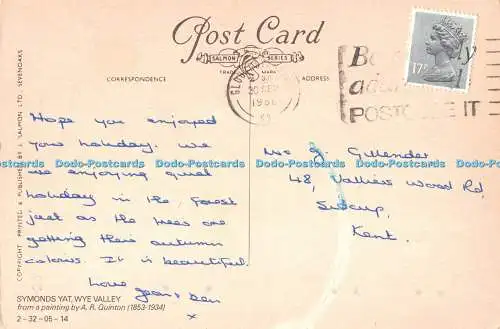 Post Card
SALMON SERIES
TRADE MARK
CORRESPONDENCE
ADDRESS
17P
POSTCODE IT
COPYRIGHT PRINTED & PUBLISHED BY J. SALMON LTD. SEVENOAKS
Hope you enjoyed
your holiday. We
are enjoying quiet
holiday in the forest
just as the trees are
getting their autumn
colours. It is beautiful.
Love Jean & Den
x
Mrs G. Gillender
48, Valliers Wood Rd,
Sidcup,
Kent.
Dodo-Postcards Dodo-Postcards Dodo-Postcards Dodo-Postcards Dodo-Postcards
SYMONDS YAT, WYE VALLEY
from a painting by A. R. Quinton (1853-1934)
2-32-05-14